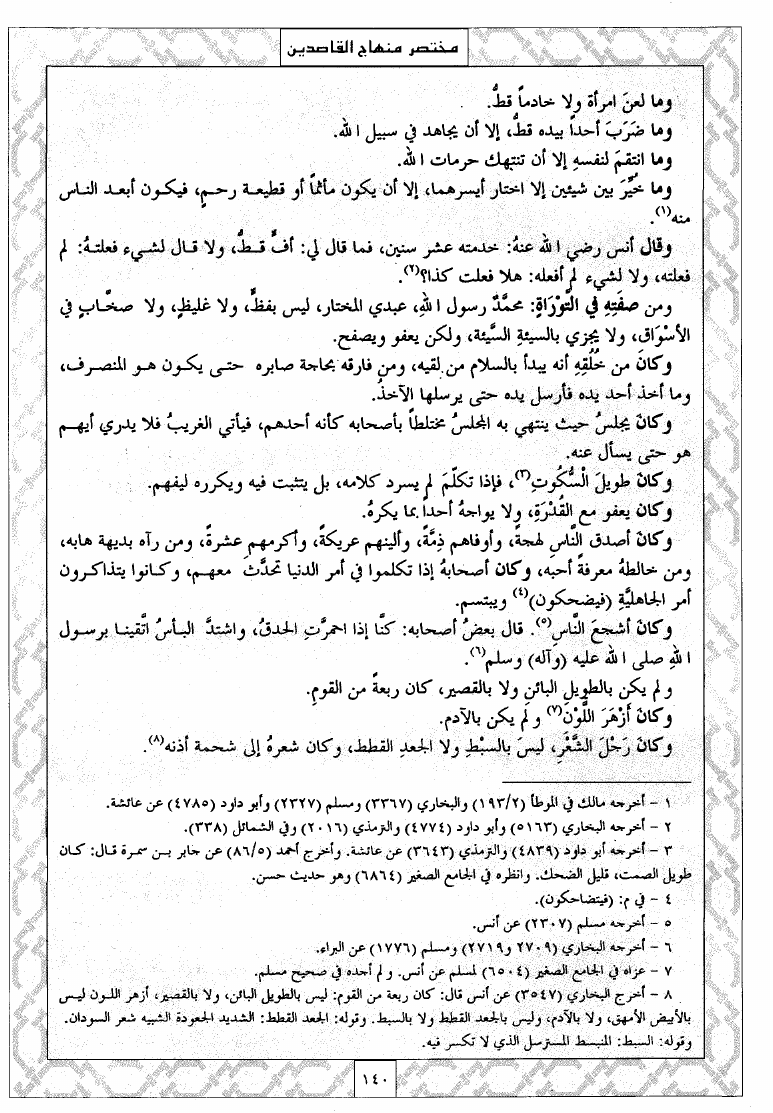 مختصر منهاج القاصدين
وما لعنَ امرأة ولا خادماً قطُّ.
وما ضَرَبَ أحداً بيده قطُّ، إلا أن يجاهد في سبيل الله.
وما انتقمَ لنفسهِ إلا أن تنتهك حرمات الله.
وما خُيِّرَ بين شيئين إلا اختار أيسرهما، إلا أن يكون مأثماً أو قطيعة رحمٍ، فيكون أبعد الناس
منه(١).
وقال أنس رضي الله عنهُ: خدمته عشر سنين، فما قال لي: أفٍّ قطُّ، ولا قال لشيء فعلتهُ: لم
فعلته، ولا لشيء لم أفعله: هلا فعلت كذا؟(٢).
ومن صفَتِهِ في التَّوْرَاةِ: محمَّدٌ رسول اللهِ، عبدي المختار، ليس بفظٍّ، ولا غليظٍ، ولا صخَّابٍ في
الأسْوَاق، ولا يجزي بالسيئةِ السَّيئة، ولكن يعفو ويصفح.
وكانَ من خُلُقِهِ أنه يبدأ بالسلام من لقيه، ومن فارقه بحاجة صابره حتى يكون هو المنصرف،
وما أخذ أحد يده فأرسل يده حتى يرسلها الآخذُ.
وكانَ يجلسُ حيث ينتهي به المجلسُ مختلطاً بأصحابه كأنه أحدهم، فيأتي الغريبُ فلا يدري أيهم
هو حتى يسأل عنه.
وكانَ طويلَ السُّكُوتِ(٣)، فإذا تكلّمَ لم يسرد كلامه، بل يتثبت فيه ويكرره ليفهم.
وكانَ يعفو مع القُدْرَةِ، ولا يواجهُ أحداً بما يكرهُ.
وكانَ أصدق النَّاسِ لهجةً، وأوفاهم ذِمَّةً، وألينهم عريكةً، وأكرمهم عشرةً، ومن رآه بديهة هابه،
ومن خالطهُ معرفةً أحبه، وكان أصحابهُ إذا تكلموا في أمر الدنيا تحدَّثَ معهم، وكانوا يتذاكرون
أمر الجاهليَّةِ (فيضحكون)(٤) ويبتسم.
وكانَ أشجعَ النَّاسِ(٥). قال بعضُ أصحابه: كنَّا إذا احمرَّتِ الحدقُ، واشتدَّ البأسُ اتَّقينا برسول
اللهِ صلى الله عليه (وآله) وسلم(٦).
ولم يكن بالطويلِ البائنِ ولا بالقصير، كان ربعةً من القومِ.
وكانَ أَزْهَرَ اللَّوْن(٧) ولم يكن بالآدم.
وكانَ رَجْلَ الشَّعْرِ، ليسَ بالسبْطِ ولا الجعدِ القططِ، وكان شعرهُ إلى شحمة أذنه(٨).
١ - أخرجه مالك في الموطأ (١٩٣/٢) والبخاري (٣٣٦٧) ومسلم (٢٣٢٧) وأبو داود (٤٧٨٥) عن عائشة.
٢ - أخرجه البخاري (٥١٦٣) وأبو داود (٤٧٧٤) والترمذي (٢٠١٦) وفي الشمائل (٣٣٨).
٣ - أخرجه أبو داود (٤٨٣٩) والترمذي (٣٦٤٣) عن عائشة. وأخرج أحمد (٨٦/٥) عن جابر بن سمرة قال: كان
طويل الصمت، قليل الضحك. وانظره في الجامع الصغير (٦٨٦٤) وهو حديث حسن.
٤ - في م: (فيتضاحكون).
٥ - أخرجه مسلم (٢٣٠٧) عن أنس.
٦ - أخرجه البخاري (٢٧٠٩ و٢٧١٩) ومسلم (١٧٧٦) عن البراء.
٧ - عزاه في الجامع الصغير (٦٥٠٤) لمسلم عن أنس. ولم أجده في صحيح مسلم.
٨ - أخرج البخاري (٣٥٤٧) عن أنس قال: كان ربعة من القوم: ليس بالطويل البائن، ولا بالقصير، أزهر اللون ليس
بالأبيض الأمهق، ولا بالآدم، وليس بالجعد القطط ولا بالسبط. وقوله: الجعد القطط: الشديد الجعودة الشبيه شعر السودان.
وقوله: السبط: المنبسط المسترسل الذي لا تكسر فيه.
١٤٠